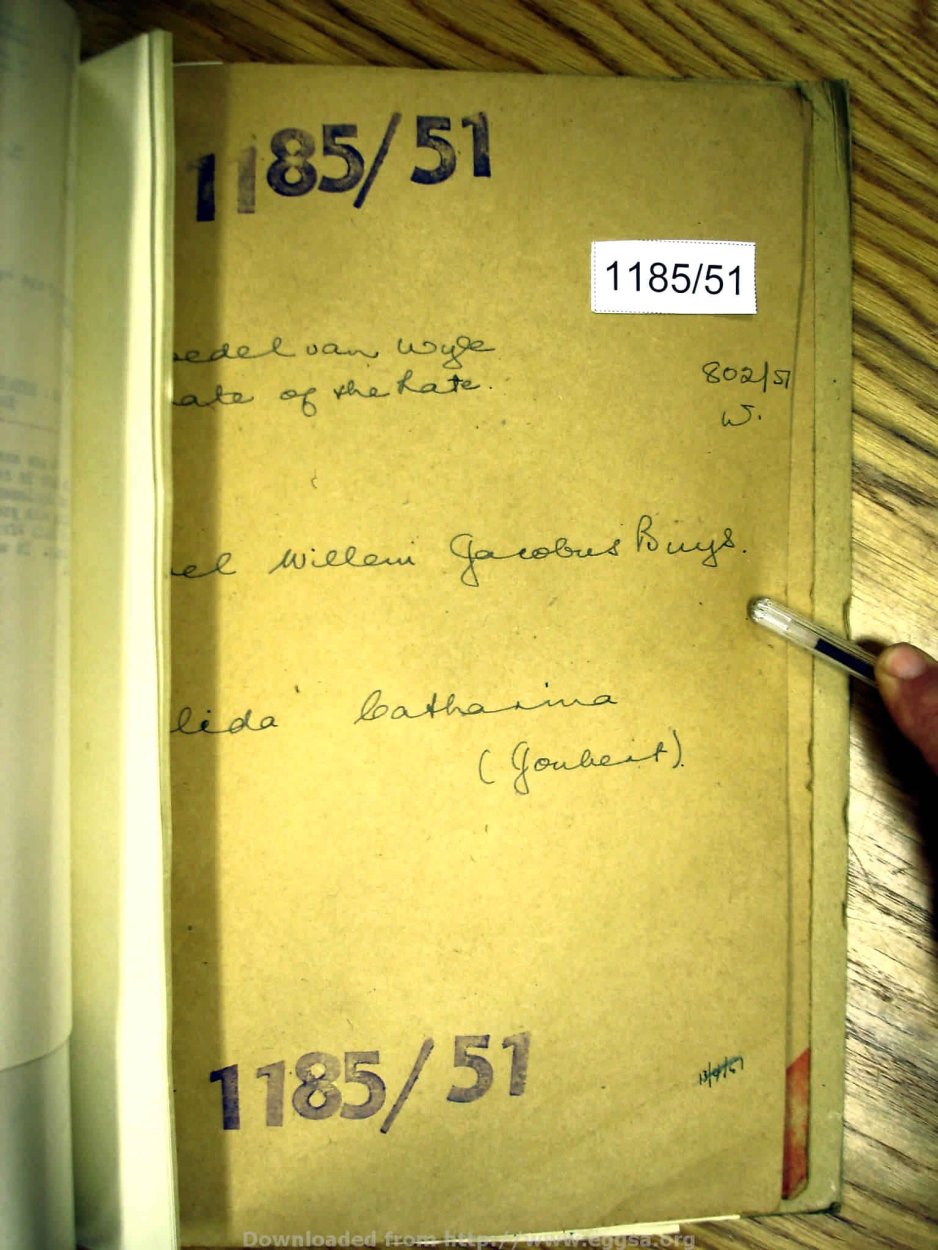 1185/51
1185/51
edel van Wyk
ate of the Late.
802/51
W.
el Willem Jacobus Buys.
lida Catharina
(Joubert).
1185/51
Downloaded from http://www.eggsa.org